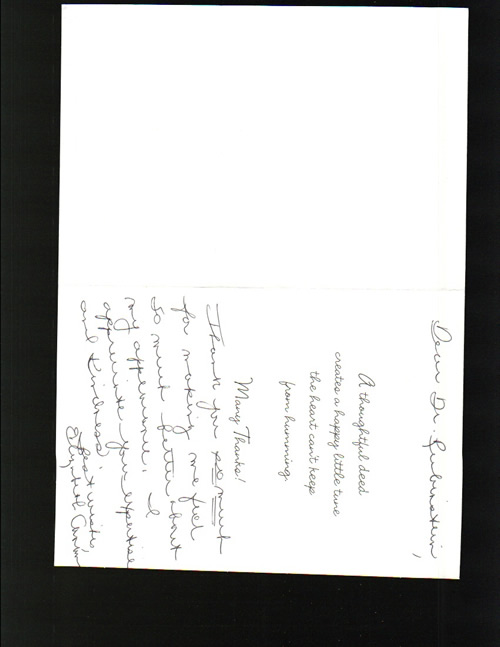 Dear Dr. Rubinstein,
A thoughtful deed
creates a happy little tune
the heart can't keep
from humming.
Many Thanks!
Thank you so much
for making me feel
so much better about
my appearance. I
appreciate your expertise
and kindness.
Best wishes,